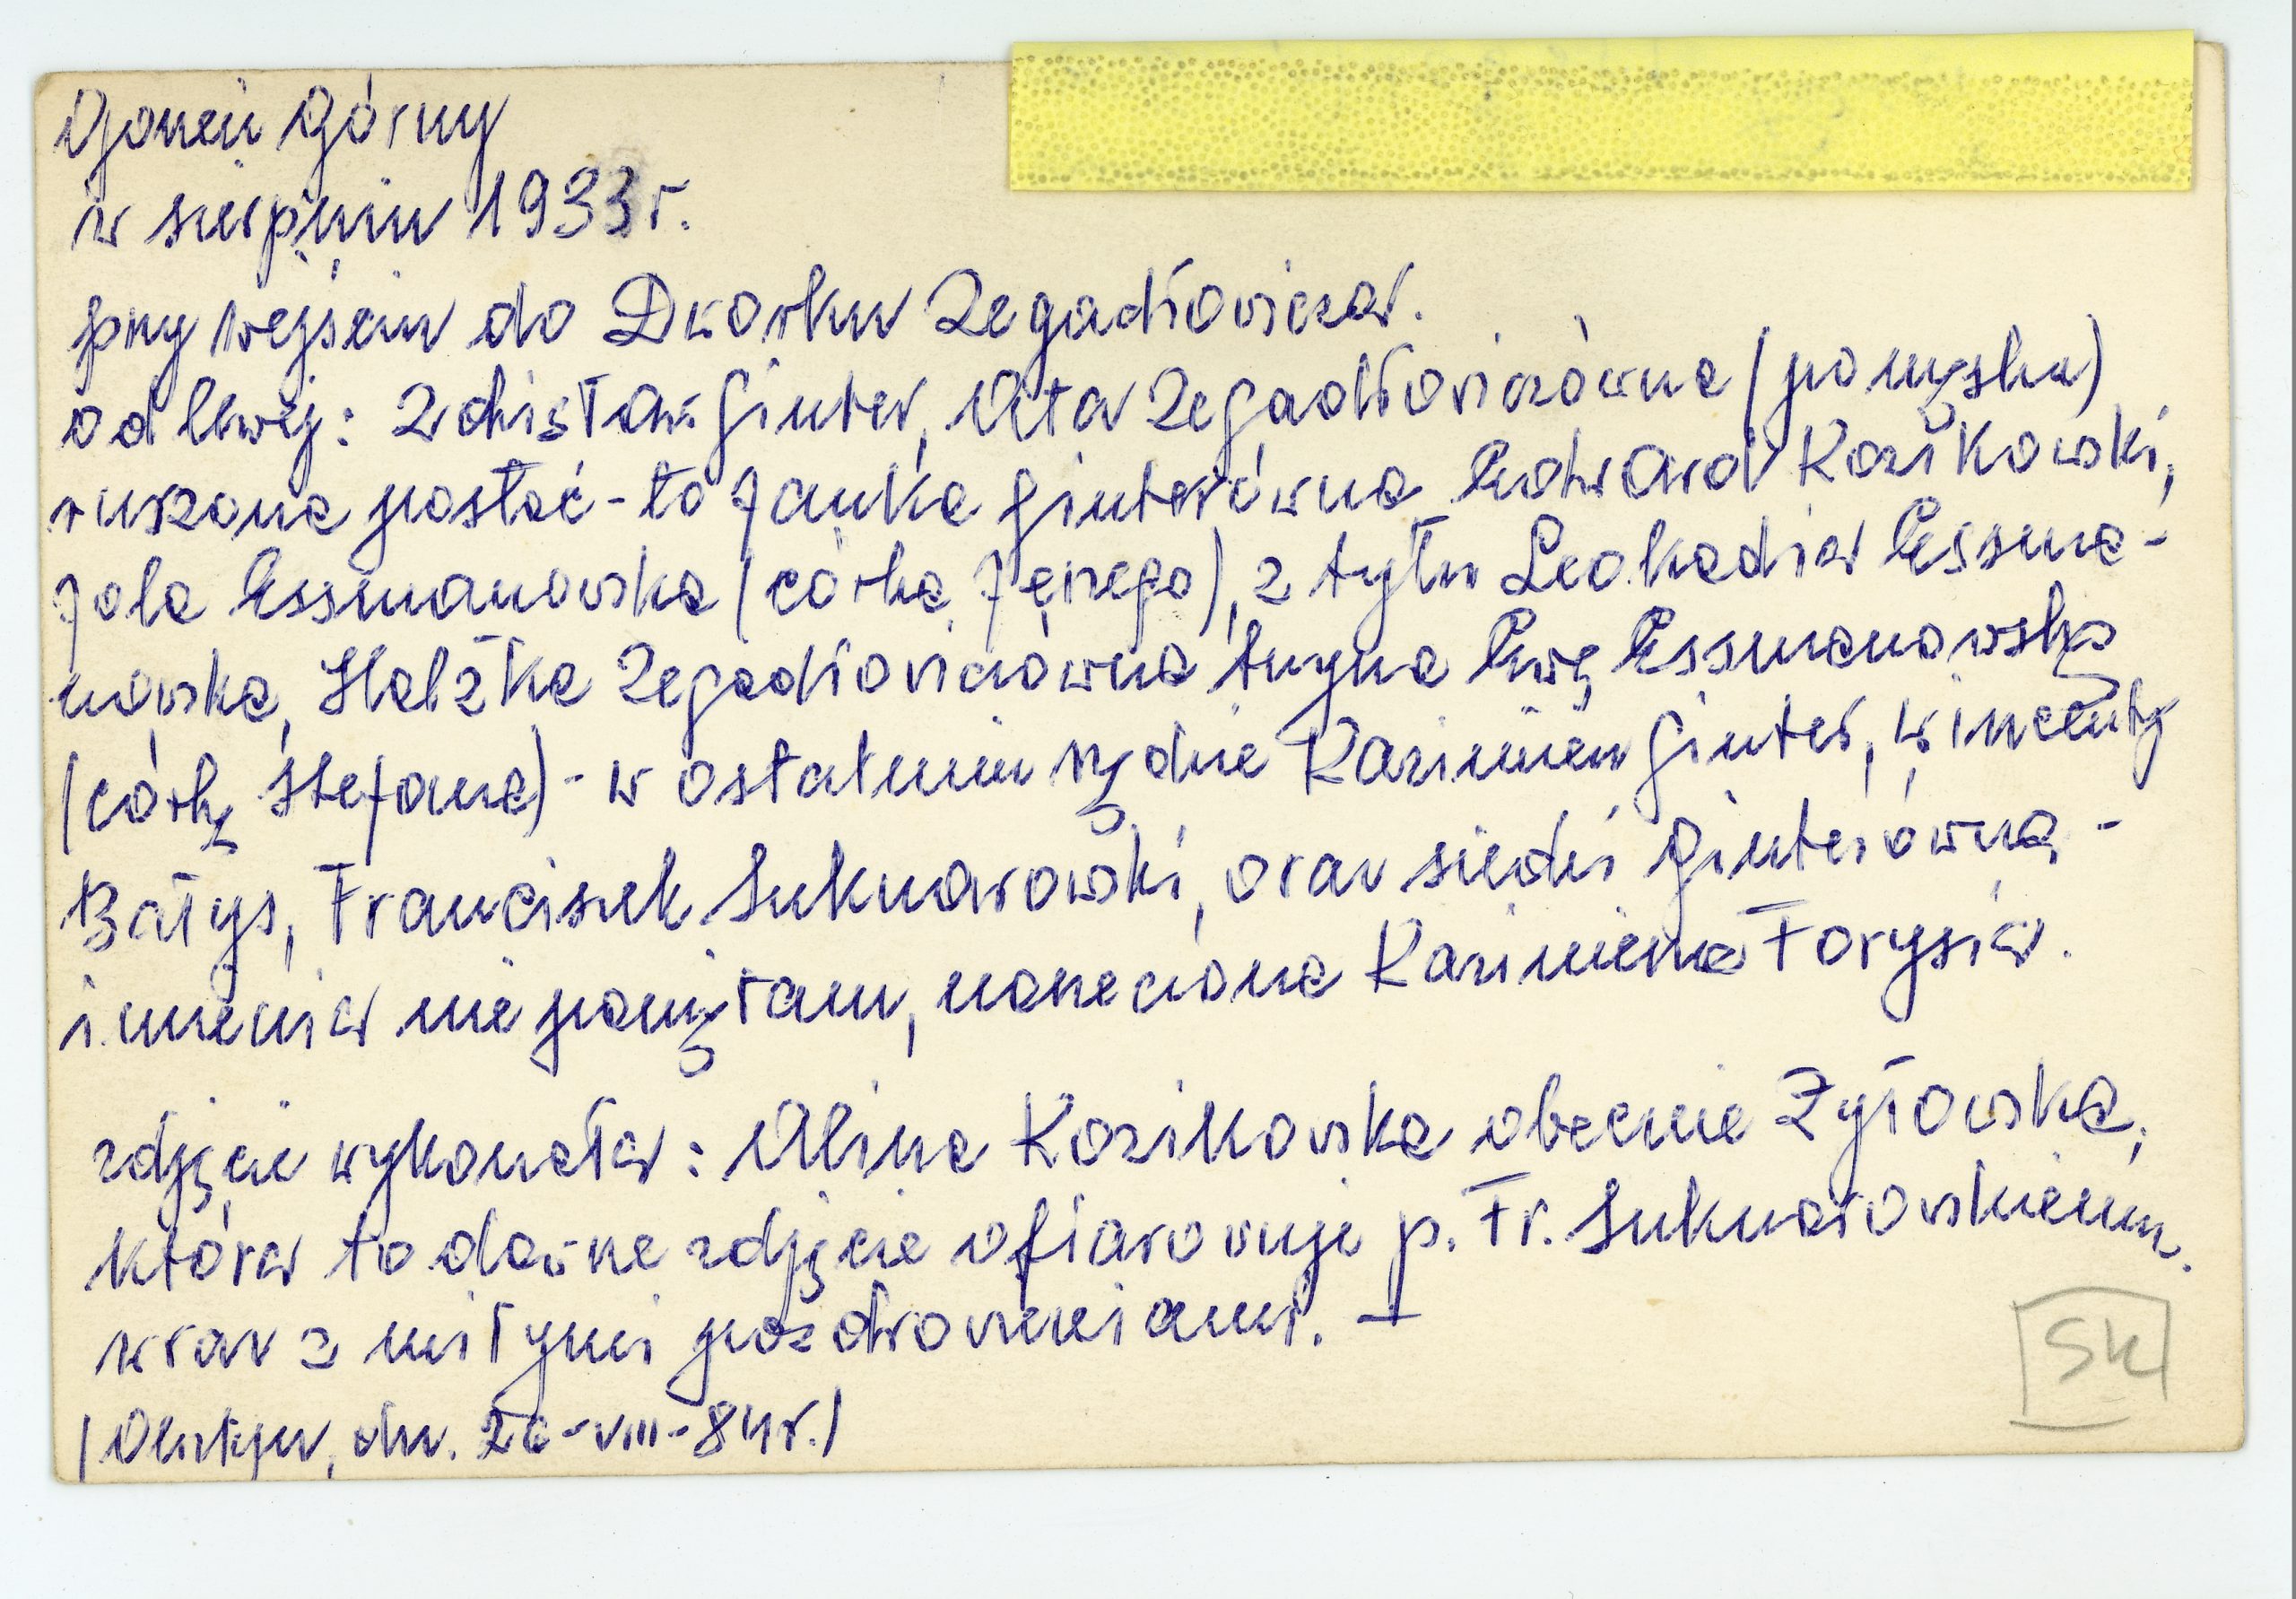 Gorzeń Górny
w sierpniu 1933 r.
przy wejściu do Dworku Zegadłowicza.
od lewej: Zdzisław Ginter, Atta Zegadłowiczówna (pomyłka)
ruszona postać - to Janka Ginterówna, Edward Kozikowski,
Jola Essmanowska (córka Jerzego), z tyłu Leokadia Essma-
nowska, Halszka Zegadłowiczówna trzyma Ewę Essmanowską
(córkę Stefana) - w ostatnim rzędzie Kazimierz Ginter, Wincenty
Bałys, Franciszek Suknarowski, oraz siedzi Ginterówna -
imienia nie pamiętam, narzeczona Kazimierza Forysia.
zdjęcie wykonała: Alina Kozikowska obecnie Żyłowska,
która to dawne zdjęcie ofiarowuje p. Fr. Suknarowskiemu
wraz z miłymi pozdrowieniami.
(Olsztyn, dn. 26-VIII-84r.)
SK